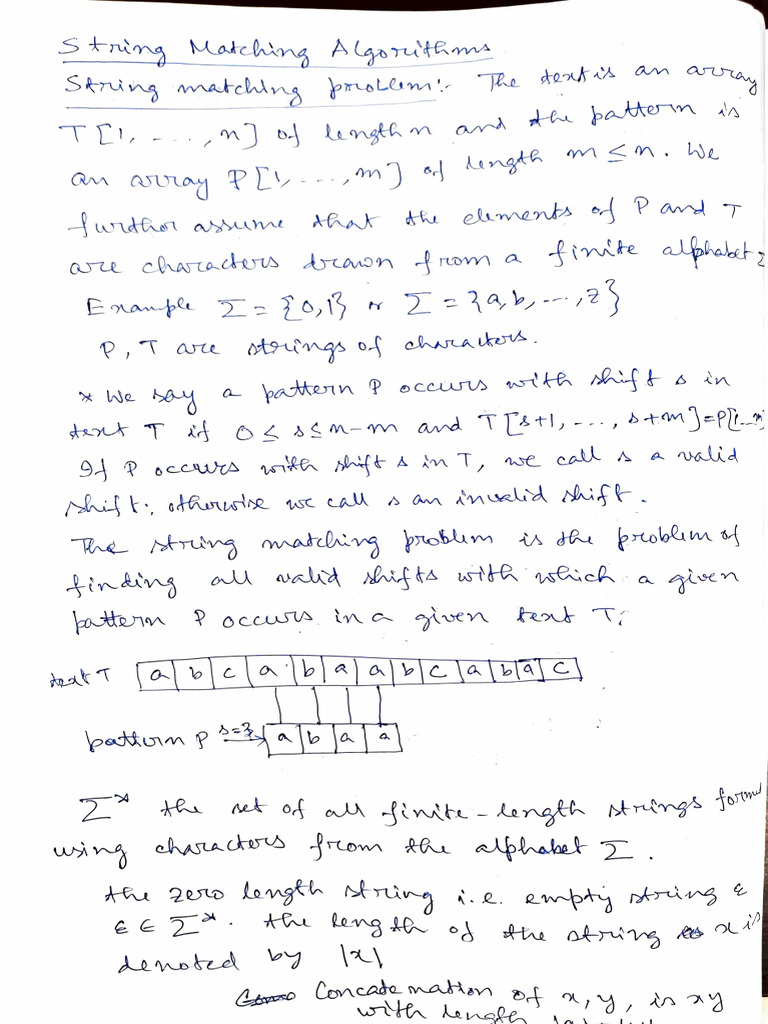 String Matching Algorithms
String matching problem:- The text is an array
T[1, ..., n] of length n and the pattern is
an array P[1, ..., m] of length m ≤ n. We
further assume that the elements of P and T
are characters drawn from a finite alphabet Σ
Example Σ = {0,1} or Σ = {a, b, ..., z}
P, T are strings of characters.
* We say a pattern P occurs with shift s in
text T if 0 ≤ s ≤ n-m and T[s+1, ..., s+m] = P[1...m]
If P occurs with shift s in T, we call s a valid
shift; otherwise we call s an invalid shift.
The string matching problem is the problem of
finding all valid shifts with which a given
pattern P occurs in a given text T.
text T a b c a b a a b c a b a c
pattern P s=3 a b a a
Σ* the set of all finite-length strings formed
using characters from the alphabet Σ.
the zero length string i.e. empty string ε
ε ∈ Σ*. the length of the string x is
denoted by |x|
Concatenation of x, y, is xy
with length